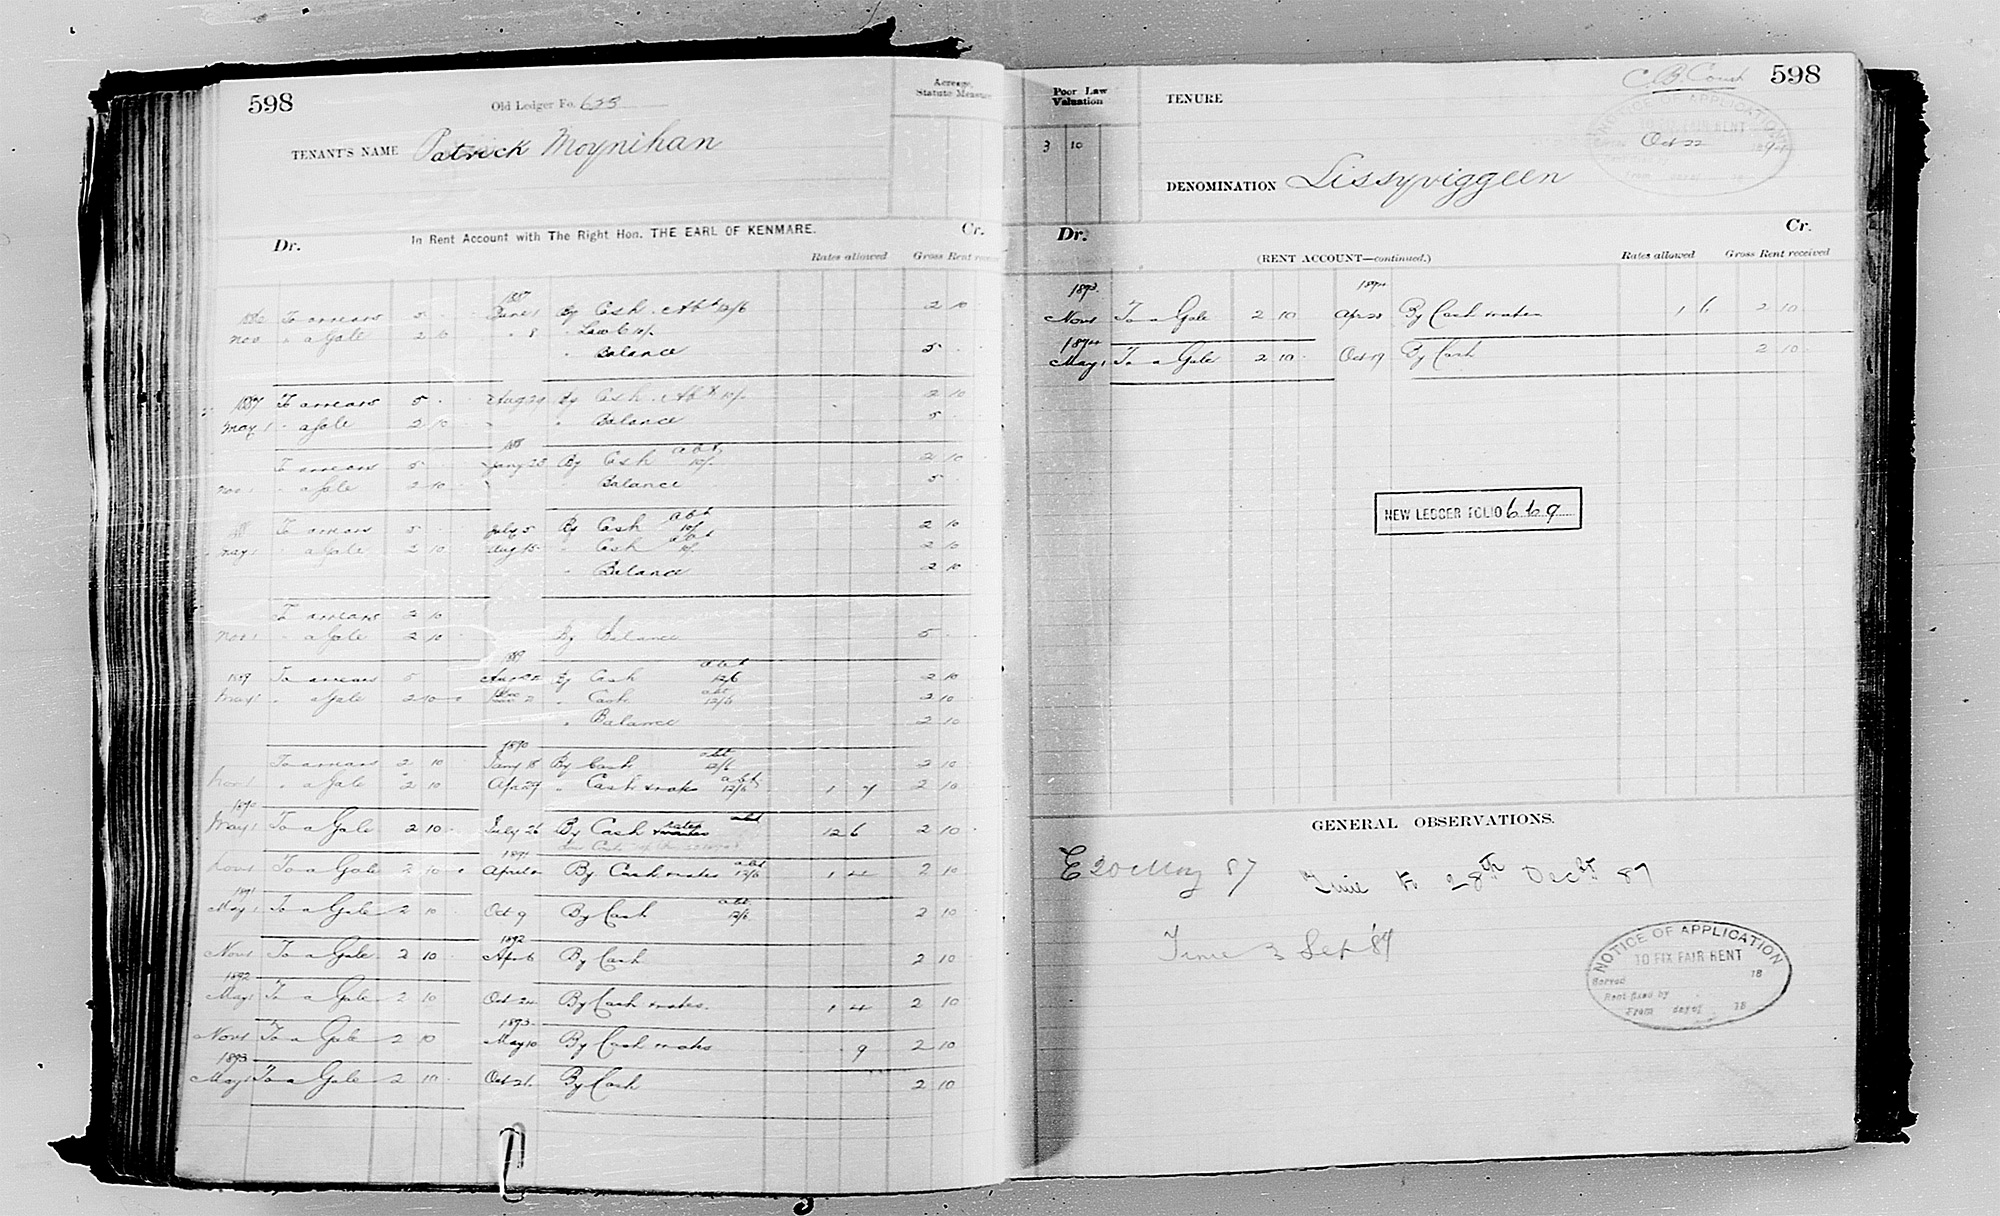 598
Old Ledger Fo. 633
Acreage, Statute Measure
TENANT'S NAME Patrick Moynihan
In Rent Account with The Right Hon. THE EARL OF KENMARE.
Dr. Cr.
Rates allowed Gross Rent received
1887
1886 To arrears 5 June 1 By Cash Abt 12/6 2 10
Nov. " a Gale 2 10 " 8 " Law C
" Balance 5
1887 To arrears 5 Aug 29 By Cash Abt 10/- 2 10
May 1 " a Gale 2 10 " Balance 5
1888
To arrears 5 Jany 23 By Cash abt 10/- 2 10
Nov 1 " a Gale 2 10 " Balance 5
88 To arrears 5 July 5 By Cash abt 10/- 2 10
May 1 " a Gale 2 10 Aug 18 " Cash abt 10/- 2 10
" Balance 2 10
To arrears 2 10
Nov 1 " a Gale 2 10 By Balance 5
1889
1889 To arrears 5 By Cash abt 12/6 2 10
May 1 " a Gale 2 10 " Cash abt 12/6 2 10
" Balance 2 10
1890
To arrears 2 10 Jany 18 By Cash abt 12/6 2 10
Nov 1 " a Gale 2 10 Apr 29 " Cash & rates abt 12/6 1 7 2 10
1890
May 1 To a Gale 2 10 July 26 By Cash rates abt 12 6 2 10
1891
Nov 1 To a Gale 2 10 April By Cash & rates abt 12/6 1 4 2 10
1891
May 1 To a Gale 2 10 Oct 9 By Cash abt 12/6 2 10
1892
Nov 1 To a Gale 2 10 Apr 6 By Cash 2 10
1892
May 1 To a Gale 2 10 Oct 24 By Cash & rates 1 4 2 10
1893
Nov 1 To a Gale 2 10 May 10 By Cash & rates 9 2 10
1893
May 1 To a Gale 2 10 Oct 21 By Cash 2 10
Poor Law Valuation
3 10
TENURE
C. B. Court
598
NOTICE OF APPLICATION
TO FIX FAIR RENT
Oct 22 1894
From day of 18
DENOMINATION Lissyviggeen
Dr. Cr.
(RENT ACCOUNT—continued.)
Rates allowed Gross Rent received
1893 1894
Nov 1 To a Gale 2 10 Apr 28 By Cash & rates 1 6 2 10
1894
May 1 To a Gale 2 10 Oct 19 By Cash 2 10
NEW LEDGER FOLIO 669
GENERAL OBSERVATIONS.
E 20 May 87 Time to 28th Decbr 87
Time 3 Sep '89
NOTICE OF APPLICATION
TO FIX FAIR RENT
Served 18
Rent fixed by
From day of 18